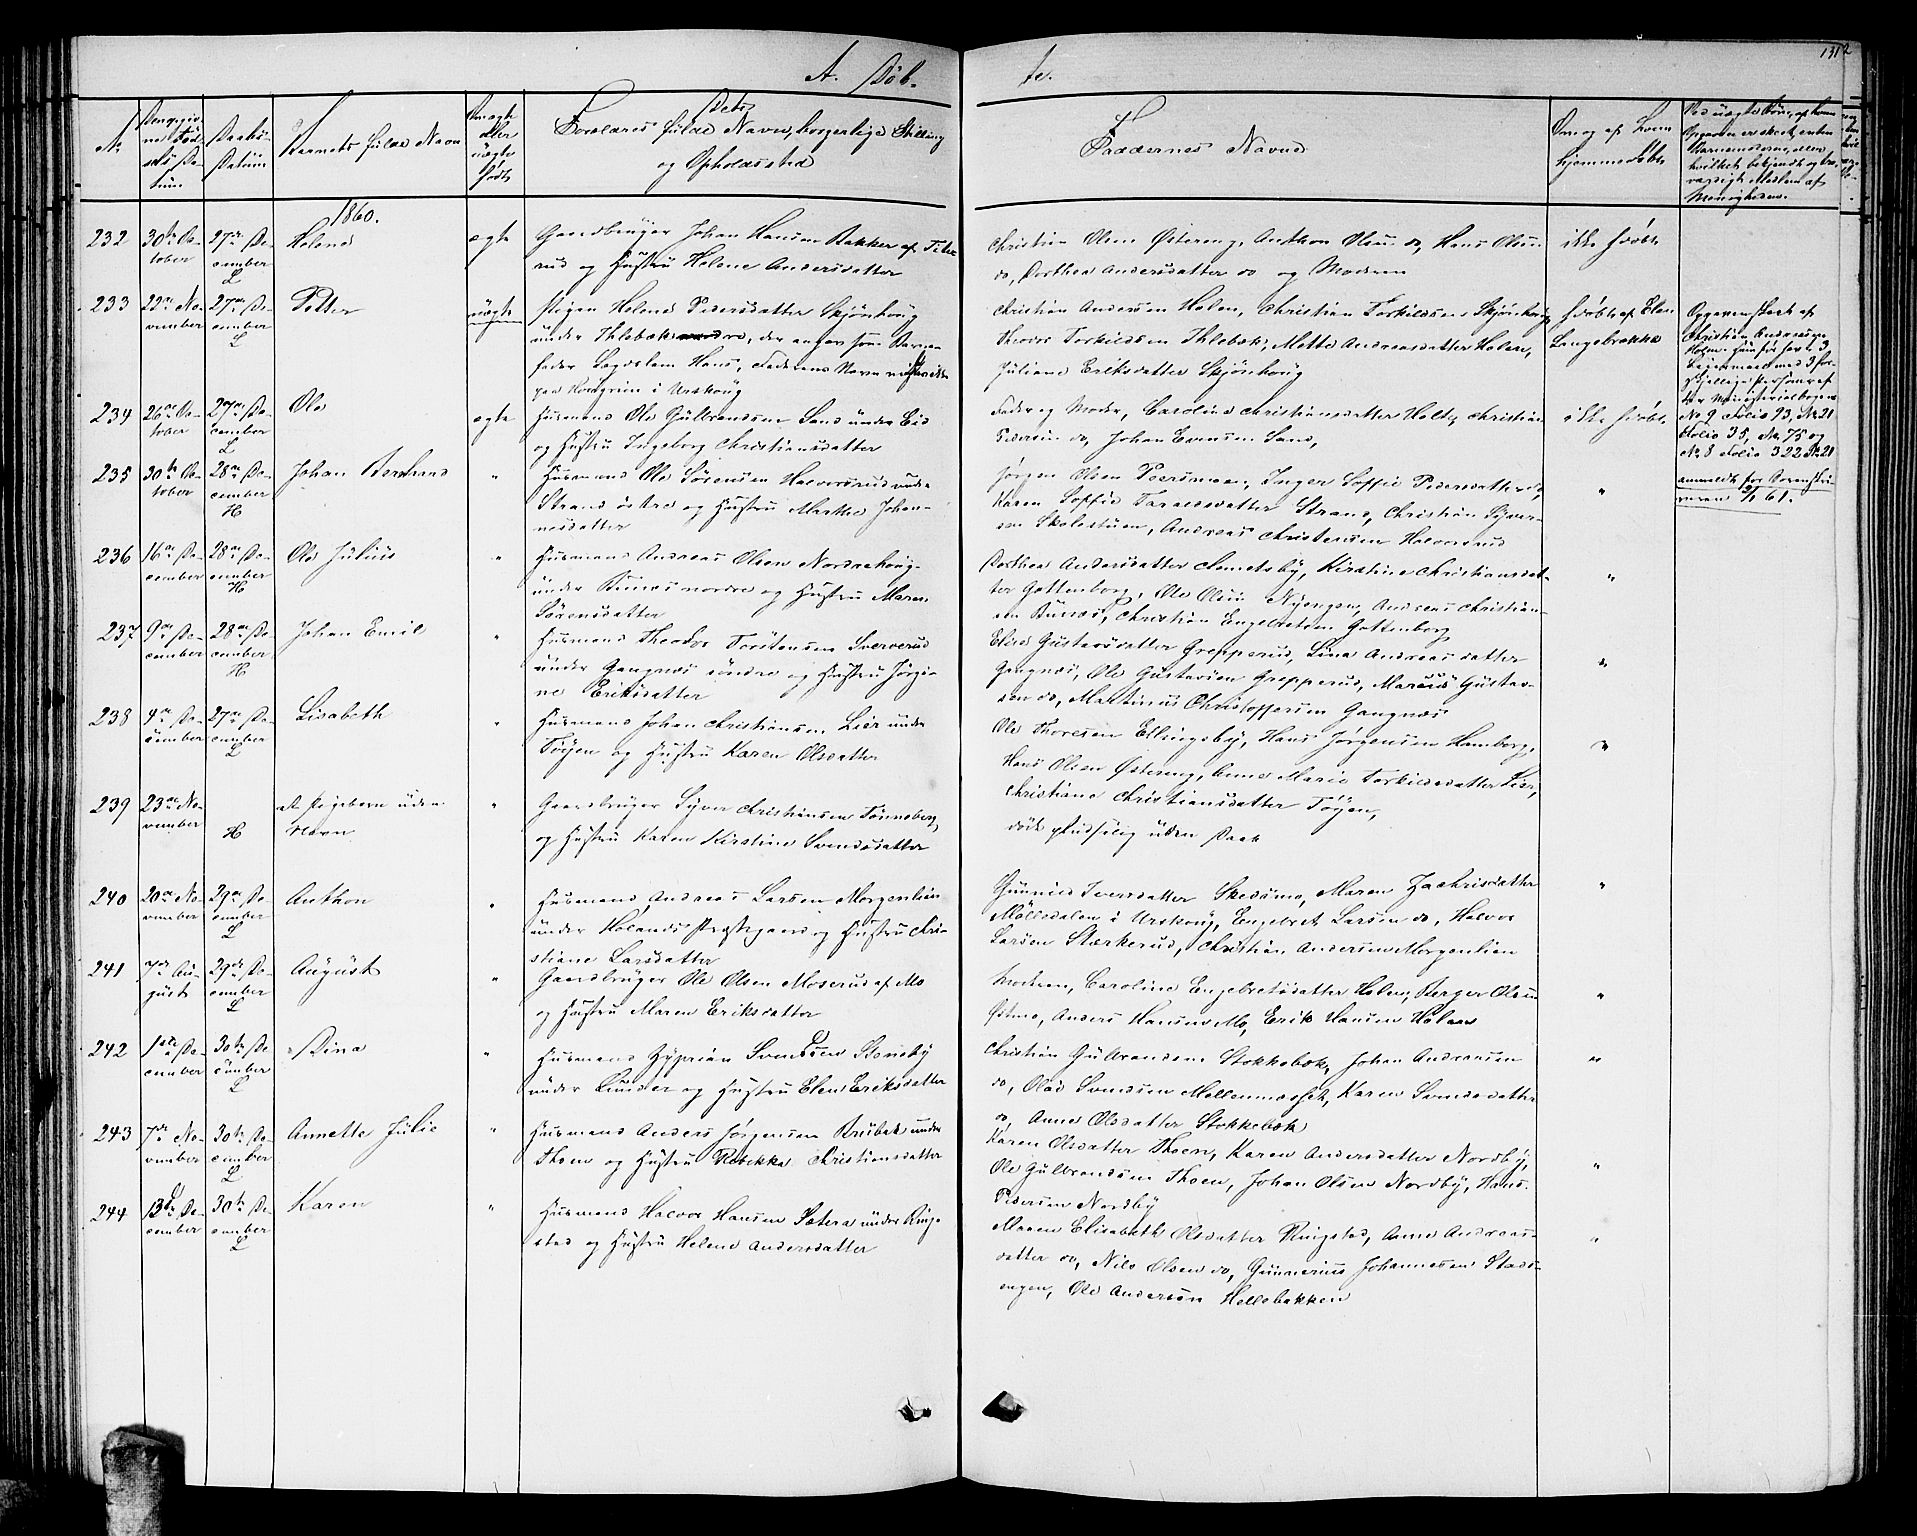 131
A. Döb-
te.
No
Barnets fulde Navn
og Opholdssted
Faddernes Navne
1860.
232
30te Oc-
tober
27de De-
cember
L
Helene
ægte
Gaardbruger Johan Hansen Bakker af
rud og Hustru Helene Andersdatter
Christian Olsen Østereng, Anthon Olsen do, Hans Olsen
do, Dorthea Andersdatter do og Moderen
ikke hjdøbt
233
22de No-
vember
27de De-
cember
L
Petter
uægte
Pigen Helene Pedersdatter Skjønhoug
under Ihlebæk
fader Lægdslem Hans, Faderens Navn
paa Kongrim i Urskoug
Christian Andersen Holen, Christian Torkildsen Skjønhoug
Theodor Torkildsen Ihlebæk, Mette Andreasdatter Holen,
Juliane Eriksdatter Skjønhoug
hjdøbt af Elen
Langebrække
Opgaven skeet af
Christian Andersen
No 9 Folio 93, No 21
Folio 35, No 75 og
No 8 Folio 322 No 21
234
26de Oc-
tober
27de De-
cember
L
Ole
ægte
Husmand Ole Gulbrandsen Sand under Eid
og Hustru Ingeborg Christiansdatter
Fader og Moder, Caroline Christiansdatter Holt, Christian
Pedersen do, Johan Evensen Sand,
ikke hjdøbt
235
30te Oc-
tober
28de De-
cember
H
Johan Bernhard
"
Husmand Ole Sørensen Halvorsrud under
Strand östre og Hustru Marthe Johan-
nesdatter
Jørgen Olsen Peersmoen, Inger Soffie Pedersdatter do,
Karen Soffie Taraldsdatter Strand, Christian Syver-
sen Skolestuen, Andreas Christensen Halvorsrud
"
236
16de De-
cember
28de De-
cember
H
Ole Julius
"
Husmand Andreas Olsen Nordrehoug
under Bunæs nordre og Hustru Maren
Sörensdatter
Dorthea Andersdatter Nemetsby, Kirstine Christiansdat-
ter Gottenborg, Ole Olsen Nyengen, Andreas Christian-
sen Bunæs, Christian Engebretsen Gottenborg
"
237
9de De-
cember
28de De-
cember
H
Johan Emil
"
Husmand Theodor Torstensen Sververud
under Gangnæs söndre og Hustru Jørgi-
ne Eriksdatter
Elise Gustavsdatter Grepperud, Lina Andreasdatter
Gangnæs, Ole Gustavsen Grepperud, Marius Gustav-
sen do, Martinus Christoffersen Gangnæs
"
238
9de De-
cember
27de De-
cember
L
Lisabeth
"
Husmand Johan Christiansen Lier under
Töyen og Hustru Karen Olsdatter
Ole Thoresen Ellingsby, Hans Jørgensen Hamborg,
Hans Olsen Østereng, Anne Marie Torkildsdatter Lier,
Christiane Christiansdatter Töyen,
"
239
23de No-
vember
H
et Pigebarn uden
Navn
"
Gaardbruger Syver Christiansen Tönneberg,
og Hustru Karen Kirstine Svendsdatter
døde pludselig uden Daab
240
20de No-
vember
29de De-
cember
L
Anthon
"
Husmand Andreas Larsen Morgenlien
under Hölands Præstegaard og Hustru Chri-
stiane Larsdatter
Gunnild Iversdatter Skedsmo, Maren Zachrisdatter
Mölledalen i Urskoug, Engebret Larsen do, Halvor
Larsen Stærkerud, Christian Andersen Morgenlien
"
241
7de Au-
gust
29de De-
cember
L
August
"
Gaardbruger Ole Olsen Moserud af Mo
og Hustru Maren Eriksdatter
Moderen, Caroline Engebretsdatter Holen, Berger Olsen
Østmo, Anders Hansen Mo, Erik Hansen Holen
"
242
1ste De-
cember
30te De-
cember
L
Dina
"
Husmand Zyprian Svendsen Stensby
under Lunder og Hustru Elen Eriksdatter
Christian Gulbrandsen Stokkebæk, Johan Andersen
do, Olea Svendsen Mellemnæsset, Karen Svendsdatter
do, Anne Olsdatter Stokkebæk
"
243
7de No-
vember
30te De-
cember
L
Annette Julie
"
Husmand Anders Jørgensen Brubak under
Thoen og Hustru Rebekka Christiansdatter
Karen Olsdatter Thoen, Karen Andersdatter Nordby,
Ole Gulbrandsen Thoen, Johan Olsen Nordby, Hans
Pedersen Nordby
"
244
13de De-
cember
30te De-
cember
L
Karen
"
Husmand Halvor Hansen Sætera under Ring-
stad og Hustru Helene Andersdatter
Maren Elisabeth Olsdatter Ringstad, Anne Andreas-
datter do, Nils Olsen do, Gunnerius Johannesen Stads-
engen, Ole Andersen Hellebakken
"